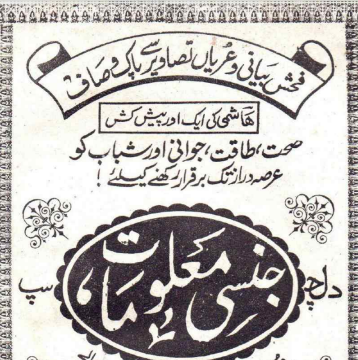 فحش بیانی و عریاں تصاویر سے پاک و صاف
ہاشمی کی ایک اور پیش کش
صحت، طاقت، جوانی اور شباب کو
عرصہ دراز تک برقرار رکھنے کیلئے !
دلچسپ
جنسی معلومات